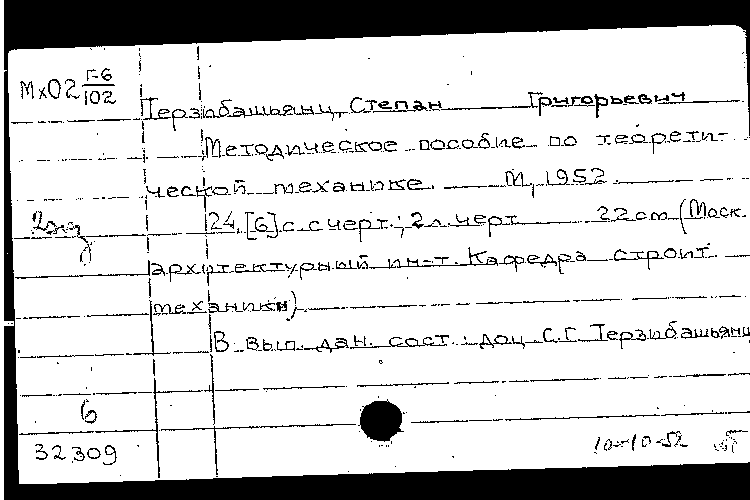 МхО2 Г-6
102
Терзибашьянц, Степан Григорьевич
Методическое пособие по теорети-
ческой механике. М, 1952.
2 экз
24, [6] с. с черт.; 2 л. черт 22 см (Моск.
архитектурный ин-т. Кафедра строит.
механики)
В вып. дан. сост.: доц. С.Г. Терзибашьянц
6
32309
10-10-52